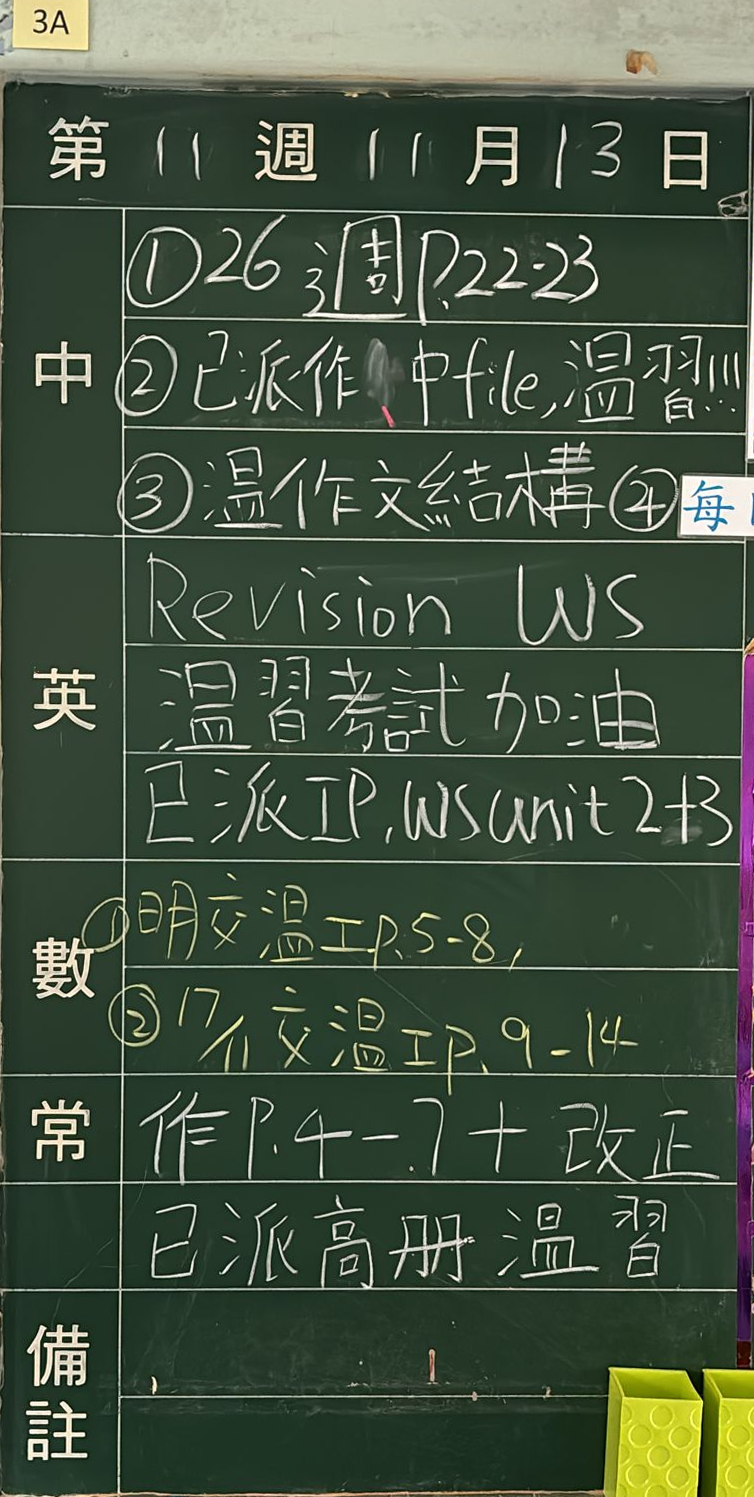 3A
第 11 週 11 月 13 日
中
①26 週 P.22-23
②已派作、中file,溫習!!!
③溫作文結構④每
英
Revision WS
溫習考試加油
已派IP,WS unit 2+3
數
①明交溫工P.5-8,
②17/11交溫工P.9-14
常
作P.4-7+改正
已派高册溫習
備註